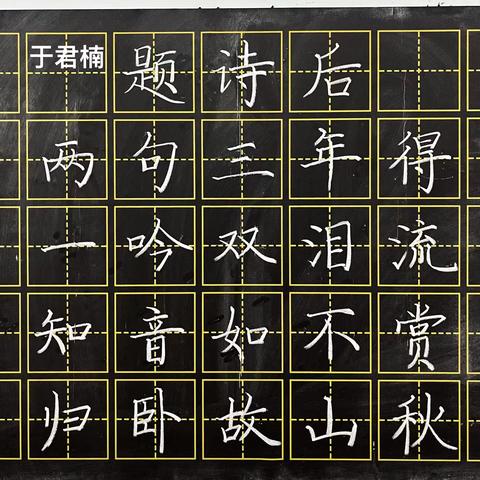 于君楠
题诗后
两句三年得
一吟双泪流
知音如不赏
归卧故山秋